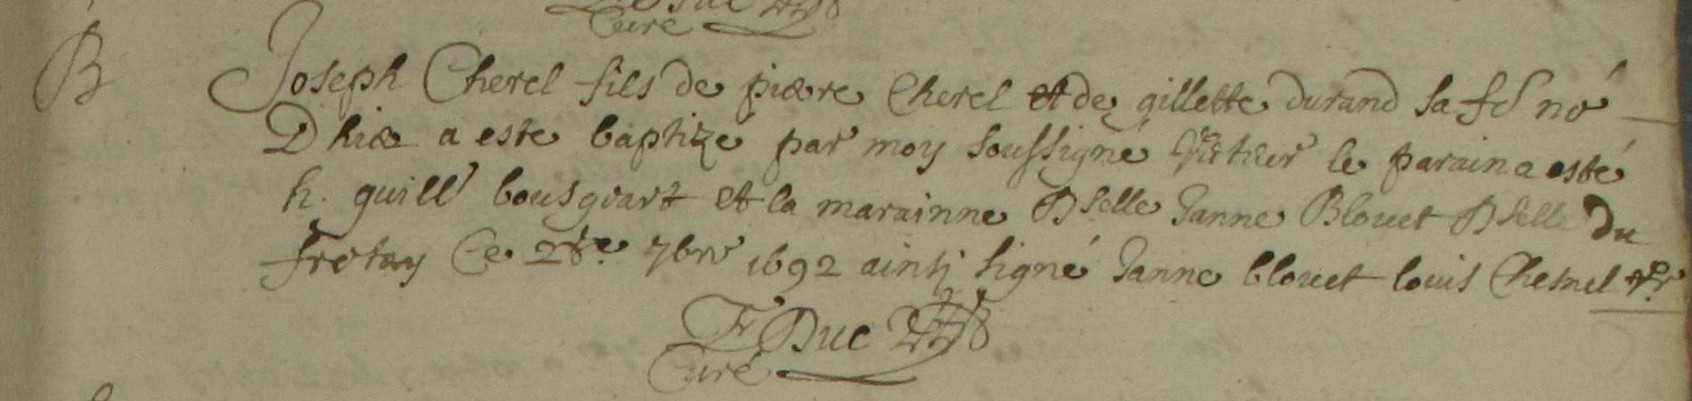 Curé
B
Joseph Cherel fils de pierre Cherel et de gillette durand sa fe né
D'hier a esté baptizé par moy soussigné le parain a esté
h. guill bousgrart et la marainne Dselle Janne Blouet Dselle du
fretay Ce 28e 7bre 1692 ainsi signé Janne blouet louis Chesnel
F Duc
Curé